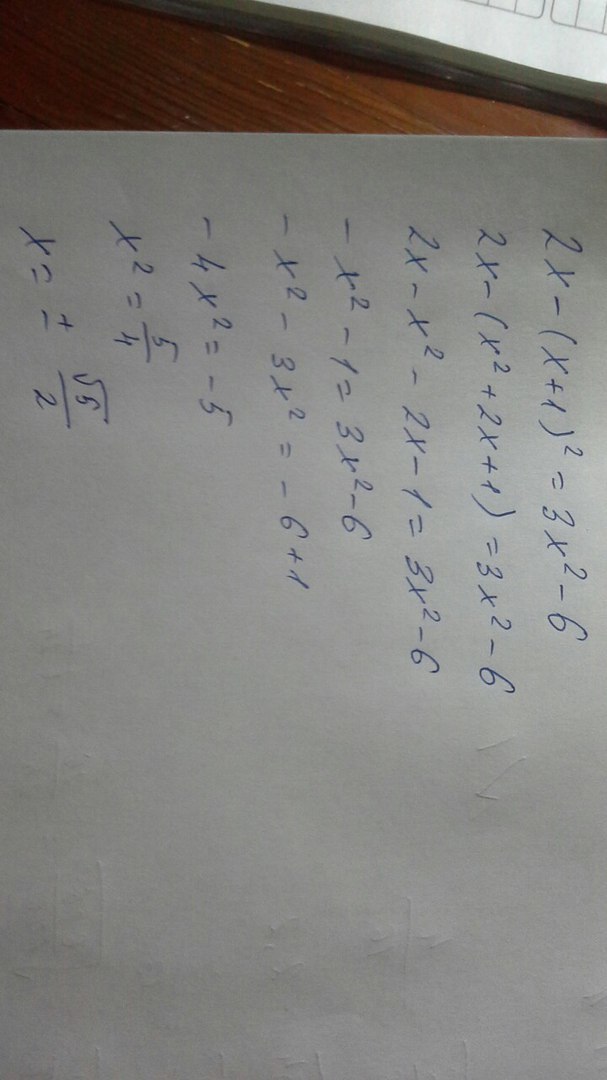 2x - (x+1)² = 3x² - 6
2x - (x² + 2x + 1) = 3x² - 6
2x - x² - 2x - 1 = 3x² - 6
- x² - 1 = 3x² - 6
- x² - 3x² = - 6 + 1
- 4x² = - 5
x² = 5/4
x = ± √5/2